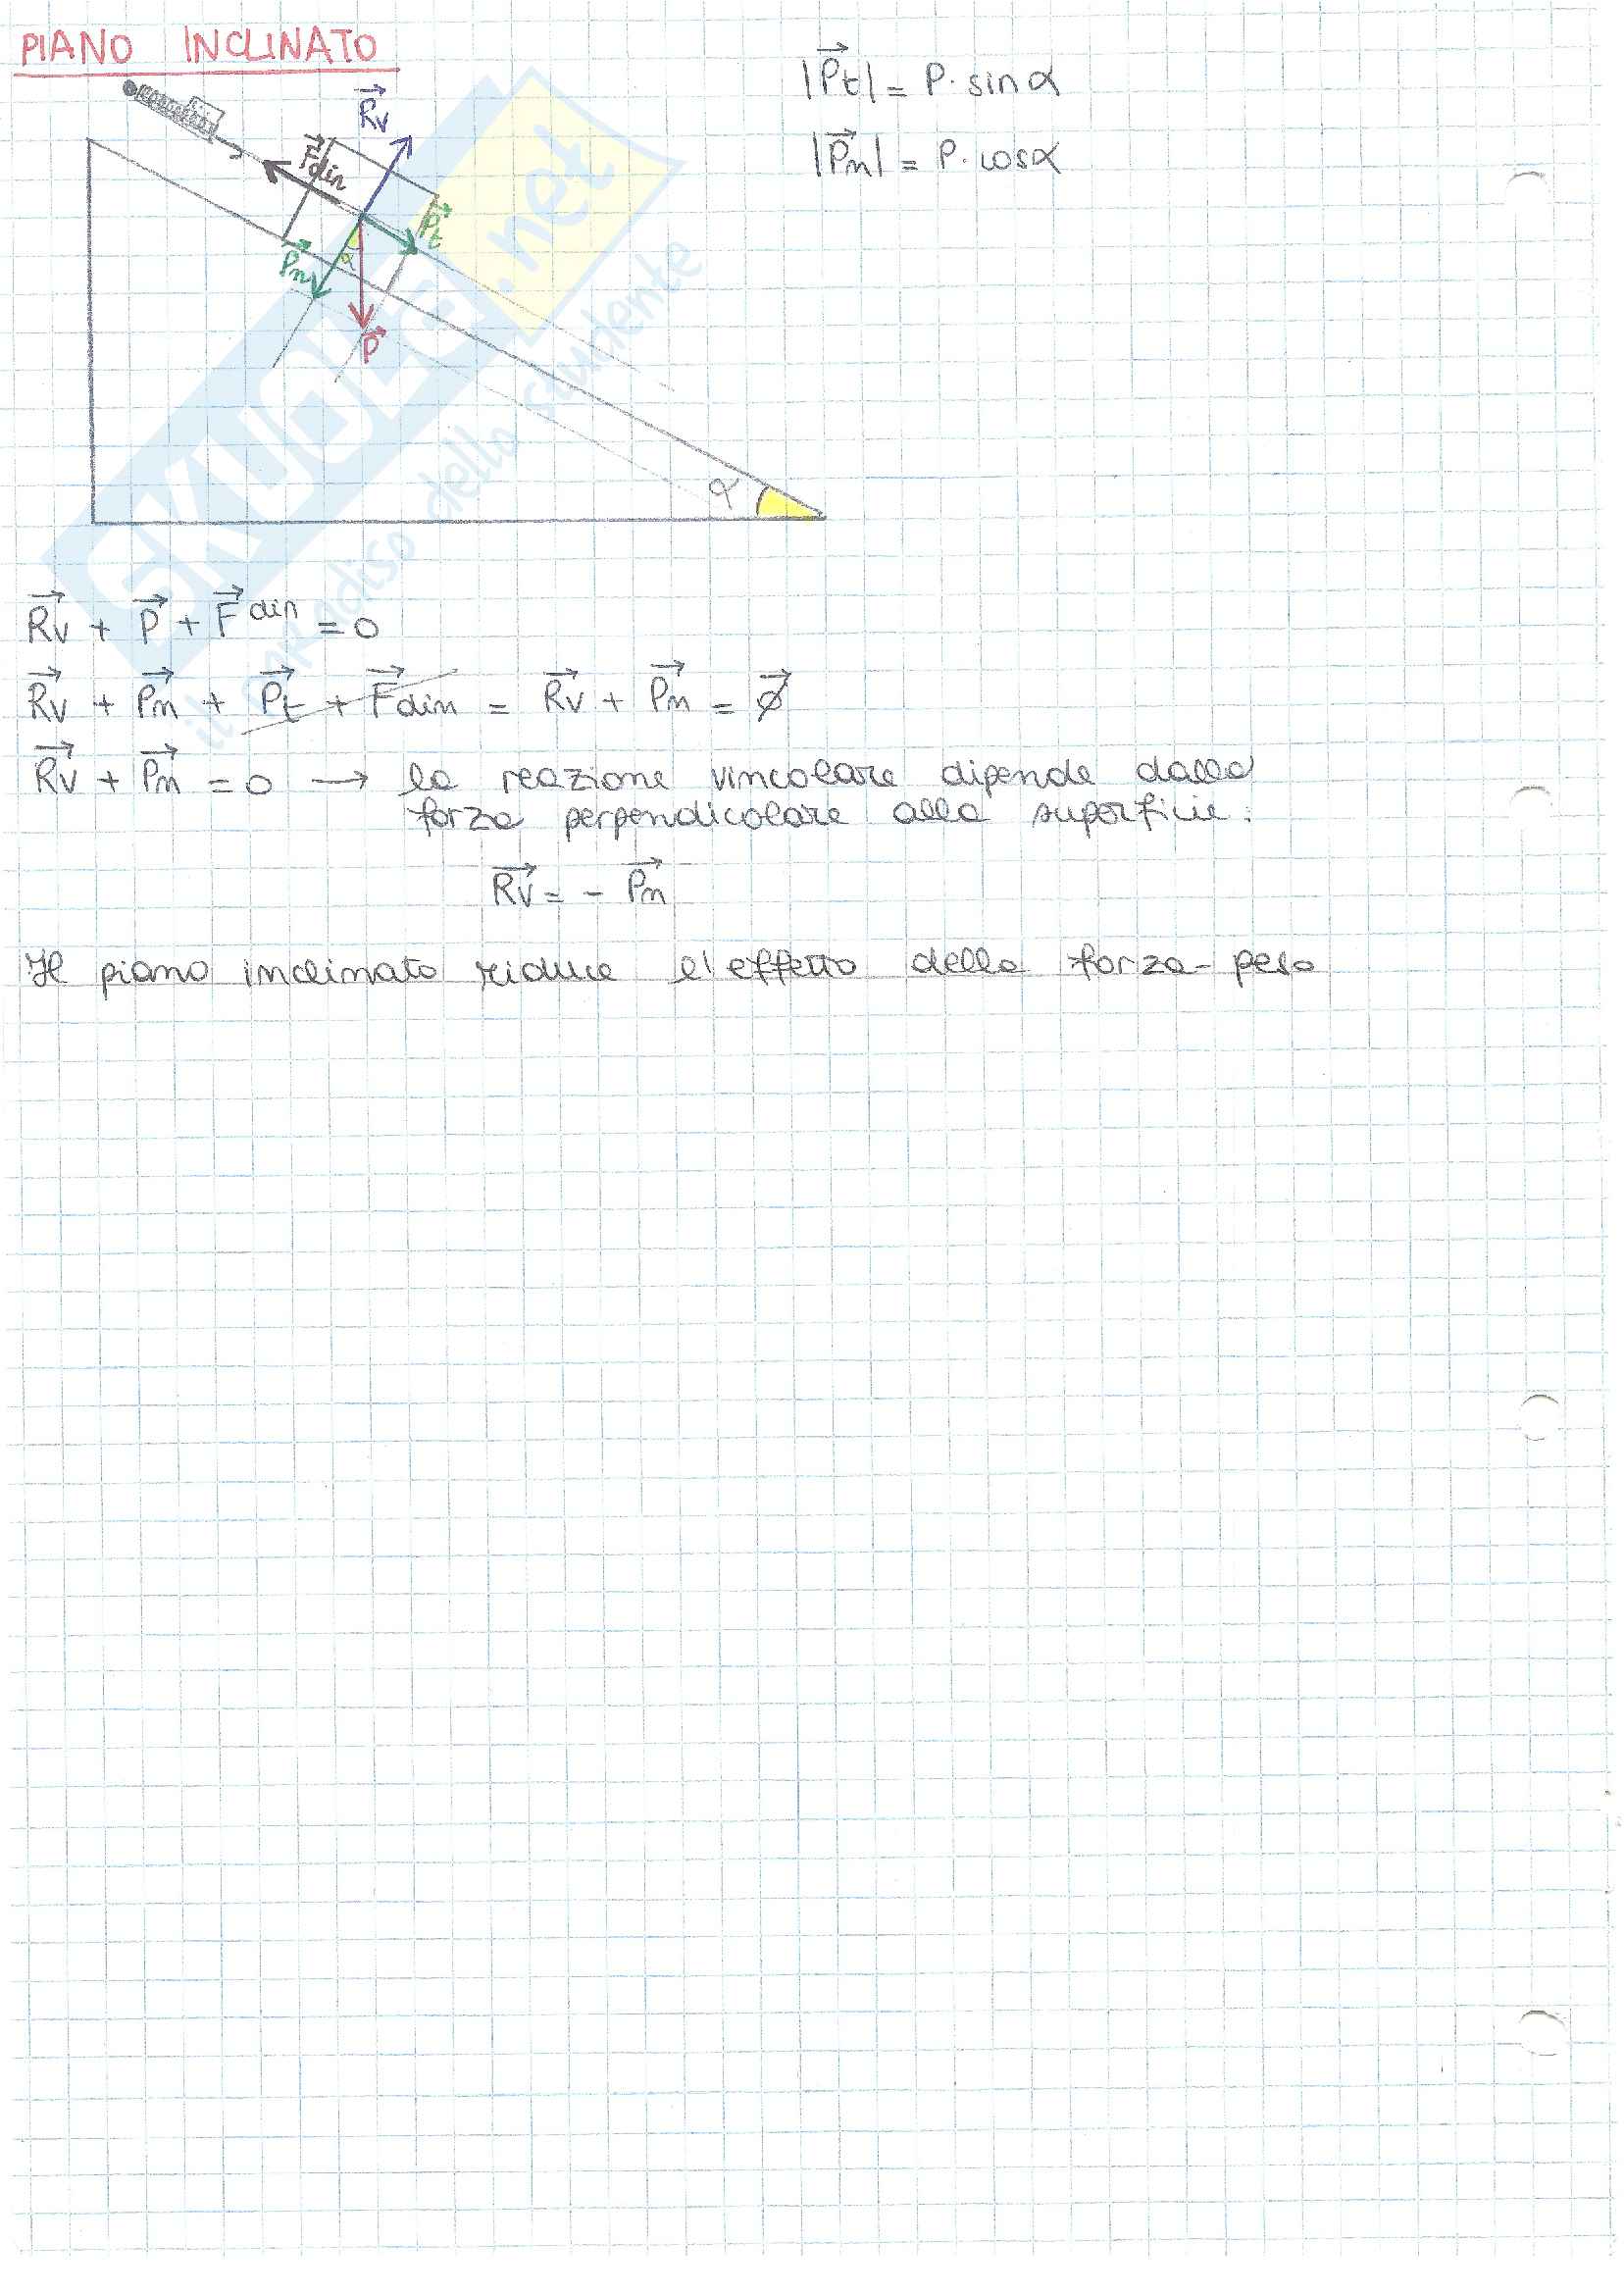 PIANO INCLINATO
|P⃗t| = P · sin α
|P⃗n| = P · cos α
R⃗v
F⃗din
P⃗t
P⃗n
α
P⃗
α
SKUOLA.net
il paradiso dello studente
R⃗v + P⃗ + F⃗ din = 0
R⃗v + P⃗n + P⃗t + F⃗din = R⃗v + P⃗n = ∅⃗
R⃗v + P⃗n = 0 → la reazione vincolare dipende dalla
forza perpendicolare alla superficie:
R⃗v = - P⃗n
Il piano inclinato riduce l'effetto della forza-peso